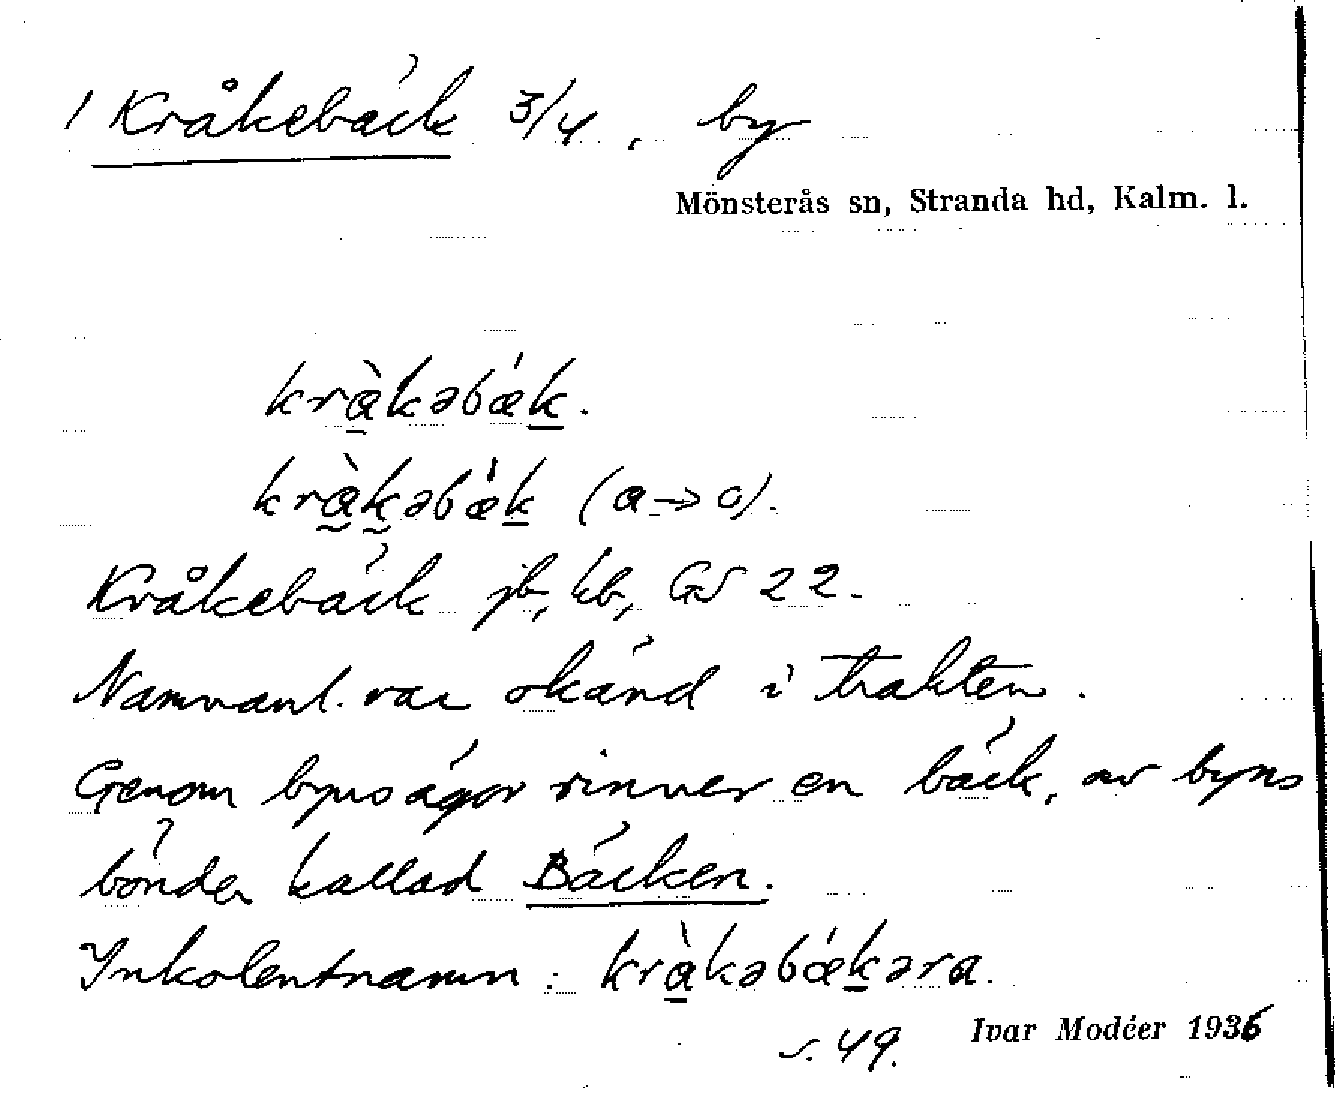 1 Kråkebäck 3/4, by
Mönsterås sn, Stranda hd, Kalm. l.
krà̱kəbǽḵ.
krà̰k̰əbǽḵ (a̱→o).
Kråkebäck jb, kb, GS 22.
Namnanl. var okänd i trakten.
Genom byns ägor rinner en bäck, av byns
bönder kallad Bäcken.
Inkolentnamn: krà̱kəbǽḵəra.
s. 49.
Ivar Modéer 1936